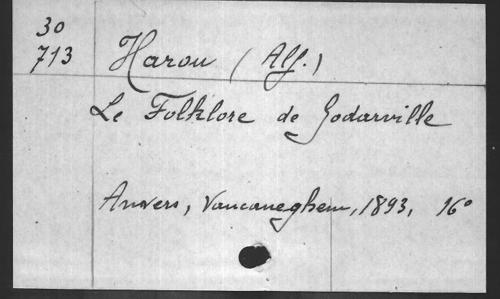 30
713
Harou (Alf.)
Le Folklore de Godarville
Anvers, Vancaneghem, 1893, 16°